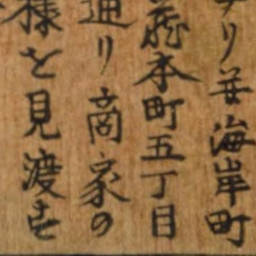 ナリ並海岸町
蔵本町五丁目
通リ商家の
様を見渡す